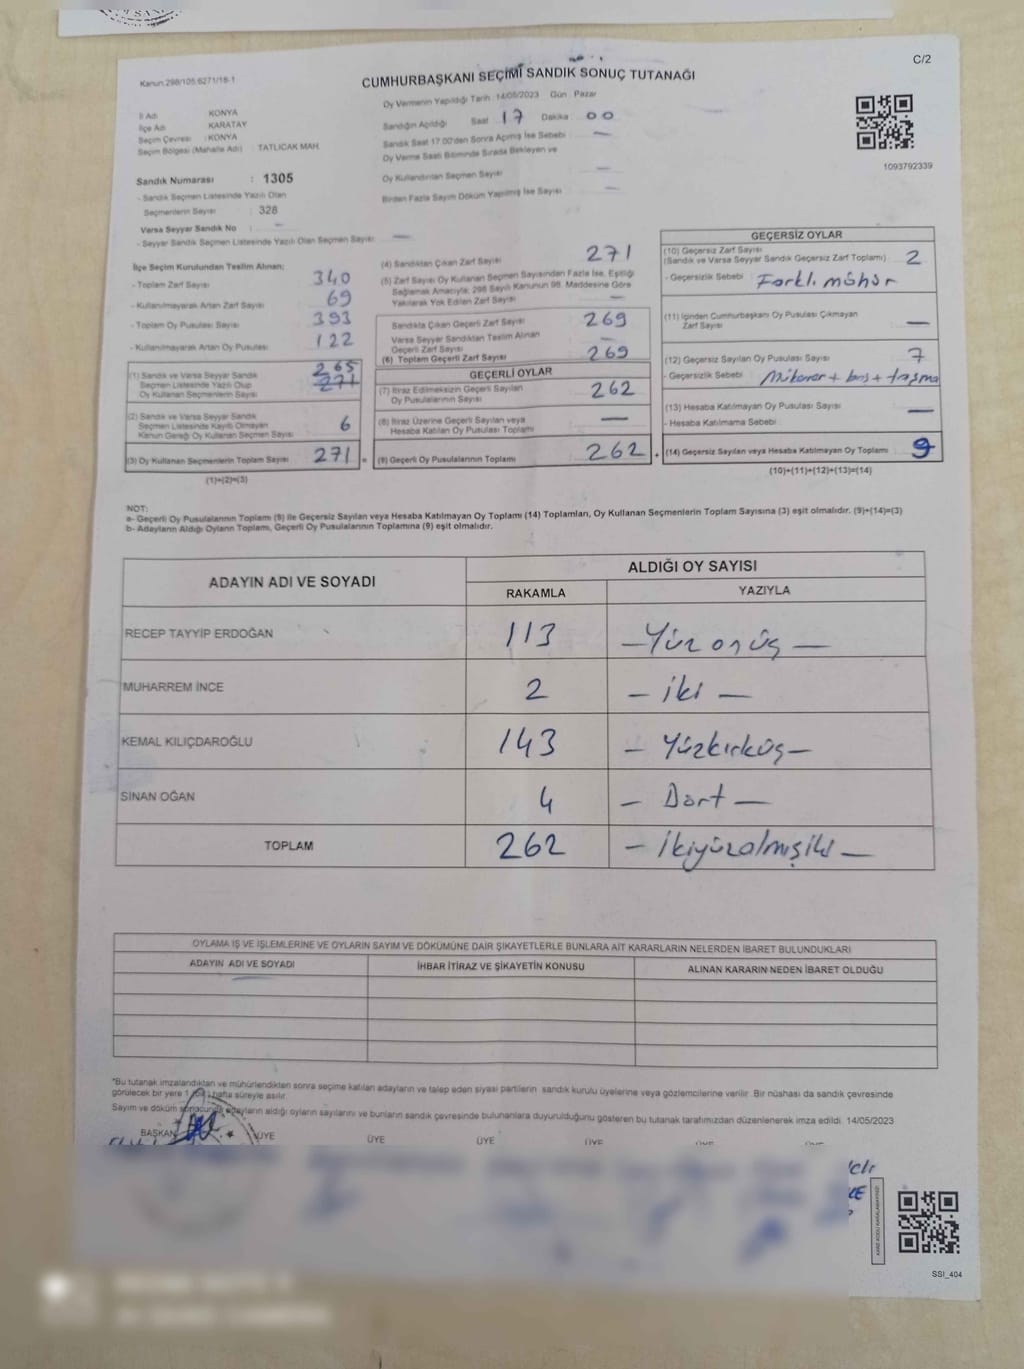 C/2
Kanun:298/105,6271/18-1
CUMHURBAŞKANI SEÇİMİ SANDIK SONUÇ TUTANAĞI
Oy Vermenin Yapıldığı Tarih : 14/05/2023 Gün : Pazar
İl Adı : KONYA
İlçe Adı : KARATAY
Seçim Çevresi : KONYA
Seçim Bölgesi (Mahalle Adı) : TATLICAK MAH.
Sandığın Açıldığı Saat 17 Dakika 00
Sandık Saat 17.00'den Sonra Açılmış İse Sebebi —
Oy Verme Saati Bitiminde Sırada Bekleyen ve
Oy Kullandırılan Seçmen Sayısı —
Birden Fazla Sayım Döküm Yapılmış İse Sayısı —
1093792339
Sandık Numarası : 1305
- Sandık Seçmen Listesinde Yazılı Olan
Seçmenlerin Sayısı : 328
Varsa Seyyar Sandık No : —
- Seyyar Sandık Seçmen Listesinde Yazılı Olan Seçmen Sayısı : —
İlçe Seçim Kurulundan Teslim Alınan;
- Toplam Zarf Sayısı 340
- Kullanılmayarak Artan Zarf Sayısı 69
- Toplam Oy Pusulası Sayısı 393
- Kullanılmayarak Artan Oy Pusulası 122
(1) Sandık ve Varsa Seyyar Sandık
Seçmen Listesinde Yazılı Olup
Oy Kullanan Seçmenlerin Sayısı
265
271
(2) Sandık ve Varsa Seyyar Sandık
Seçmen Listesinde Kayıtlı Olmayan
Kanun Gereği Oy Kullanan Seçmen Sayısı 6
(3) Oy Kullanan Seçmenlerin Toplam Sayısı 271 =
(1)+(2)=(3)
(4) Sandıktan Çıkan Zarf Sayısı 271
(5) Zarf Sayısı Oy Kullanan Seçmen Sayısından Fazla İse, Eşitliği
Sağlamak Amacıyla; 298 Sayılı Kanunun 98. Maddesine Göre
Yakılarak Yok Edilen Zarf Sayısı —
Sandıkta Çıkan Geçerli Zarf Sayısı 269
Varsa Seyyar Sandıktan Teslim Alınan
Geçerli Zarf Sayısı
(6) Toplam Geçerli Zarf Sayısı 269
GEÇERLİ OYLAR
(7) İtiraz Edilmeksizin Geçerli Sayılan
Oy Pusulalarının Sayısı 262
(8) İtiraz Üzerine Geçerli Sayılan veya
Hesaba Katılan Oy Pusulası Toplamı —
(9) Geçerli Oy Pusulalarının Toplamı 262 +
GEÇERSİZ OYLAR
(10) Geçersiz Zarf Sayısı
(Sandık ve Varsa Seyyar Sandık Geçersiz Zarf Toplamı) 2
- Geçersizlik Sebebi : Farklı mühür
(11) İçinden Cumhurbaşkanı Oy Pusulası Çıkmayan
Zarf Sayısı —
(12) Geçersiz Sayılan Oy Pusulası Sayısı 7
- Geçersizlik Sebebi :
(13) Hesaba Katılmayan Oy Pusulası Sayısı —
- Hesaba Katılmama Sebebi :
(14) Geçersiz Sayılan veya Hesaba Katılmayan Oy Toplamı 9
(10)+(11)+(12)+(13)=(14)
NOT:
a- Geçerli Oy Pusulalarının Toplamı (9) ile Geçersiz Sayılan veya Hesaba Katılmayan Oy Toplamı (14) Toplamları, Oy Kullanan Seçmenlerin Toplam Sayısına (3) eşit olmalıdır. (9)+(14)=(3)
b- Adayların Aldığı Oyların Toplamı, Geçerli Oy Pusulalarının Toplamına (9) eşit olmalıdır.
ADAYIN ADI VE SOYADI
ALDIĞI OY SAYISI
RAKAMLA YAZIYLA
RECEP TAYYİP ERDOĞAN 113 — Yüz onüç —
MUHARREM İNCE 2 — iki —
KEMAL KILIÇDAROĞLU 143 — Yüzkırküç —
SİNAN OĞAN 4 — Dört —
TOPLAM 262 — İkiyüzaltmışiki —
OYLAMA İŞ VE İŞLEMLERİNE VE OYLARIN SAYIM VE DÖKÜMÜNE DAİR ŞİKAYETLERLE BUNLARA AİT KARARLARIN NELERDEN İBARET BULUNDUKLARI
ADAYIN ADI VE SOYADI İHBAR İTİRAZ VE ŞİKAYETİN KONUSU ALINAN KARARIN NEDEN İBARET OLDUĞU
*Bu tutanak imzalandıktan ve mühürlendikten sonra seçime katılan adayların ve talep eden siyasi partilerin sandık kurulu üyelerine veya gözlemcilerine verilir. Bir nüshası da sandık çevresinde
görülecek bir yere 1 hafta süreyle asılır.
Sayım ve döküm sonucunda adayların aldığı oyların sayılarını ve bunların sandık çevresinde bulunanlara duyurulduğunu gösteren bu tutanak tarafımızdan düzenlenerek imza edildi. 14/05/2023
BAŞKAN ÜYE ÜYE ÜYE ÜYE
SSI_404